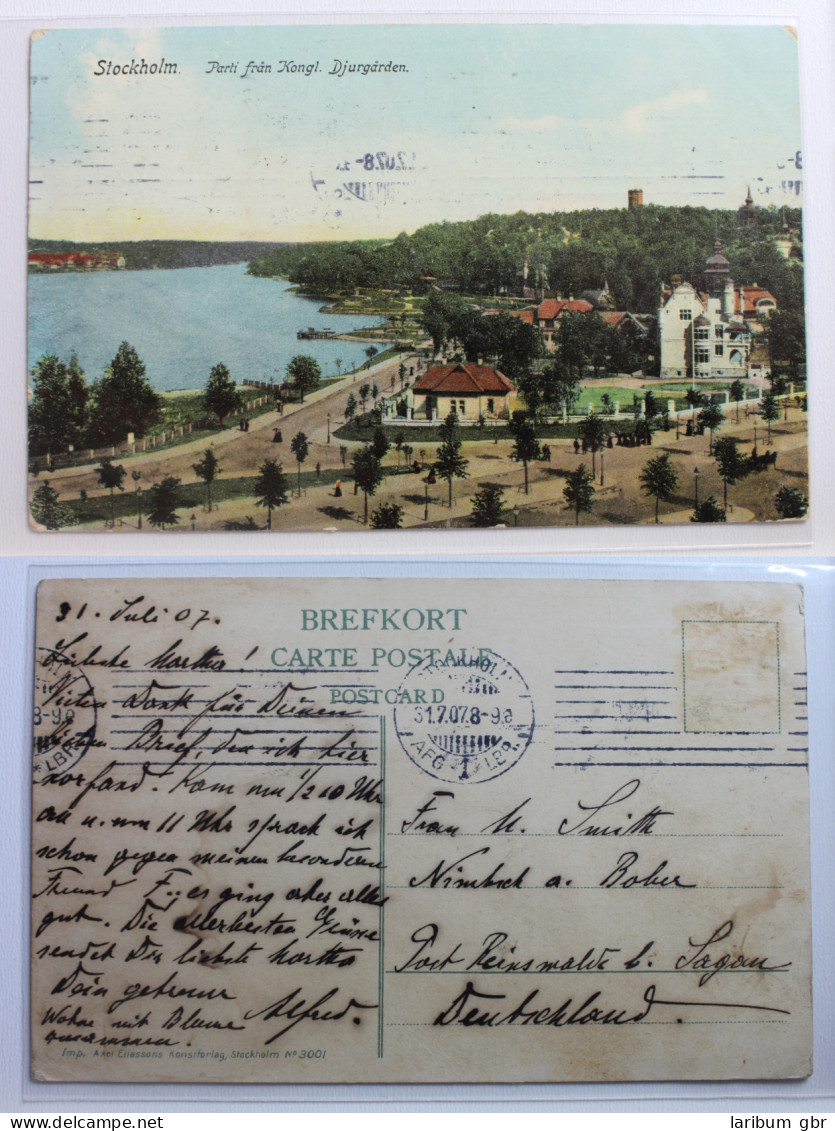 Stockholm. Parti från Kongl. Djurgården.
31. Juli 07.
BREFKORT
CARTE POSTALE
POSTCARD
STOCKHOLM
31.7.07.8-9
AFG 1 LBR
Liebste Martha!
Vielen Dank für Deinen
lieben Brief, den ich hier
vorfand. Kam um 1/2 10 Uhr
an u. um 11 Uhr sprach ich
schon gegen meinen besonderen
Freund F.., es ging aber alles
gut. Die allerbesten Grüsse
sendet Dir liebste Martha
Dein getreuer
Alfred.
Wohne mit Blume
zusammen.
Imp. Axel Eliassons Konstförlag, Stockholm Nº 3001
Frau M. Smith
Nimbsch a. Bober
Post Reinswalde b. Sagan
Deutschland.
laribum gbr